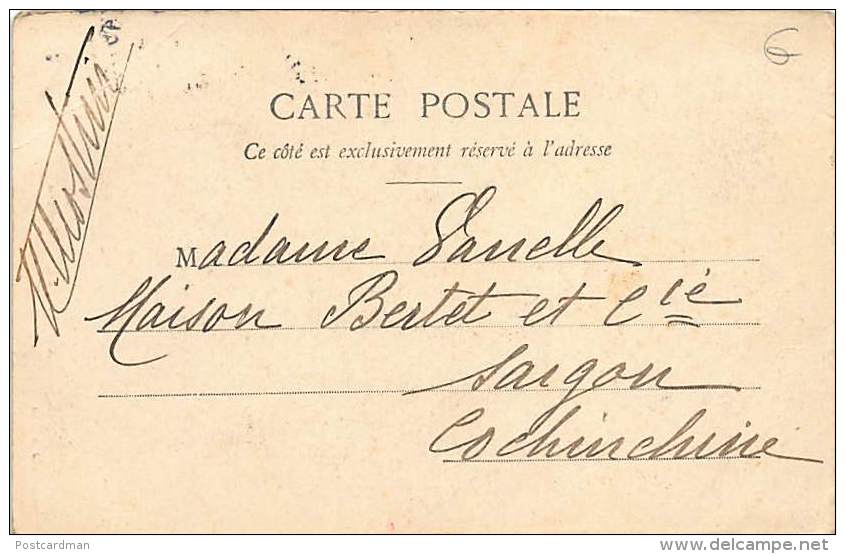 6
CARTE POSTALE
Ce côté est exclusivement réservé à l'adresse
Madame
Maison Bertet et Cie
Saigon
Cochinchine
Postcardman
delcampe.net